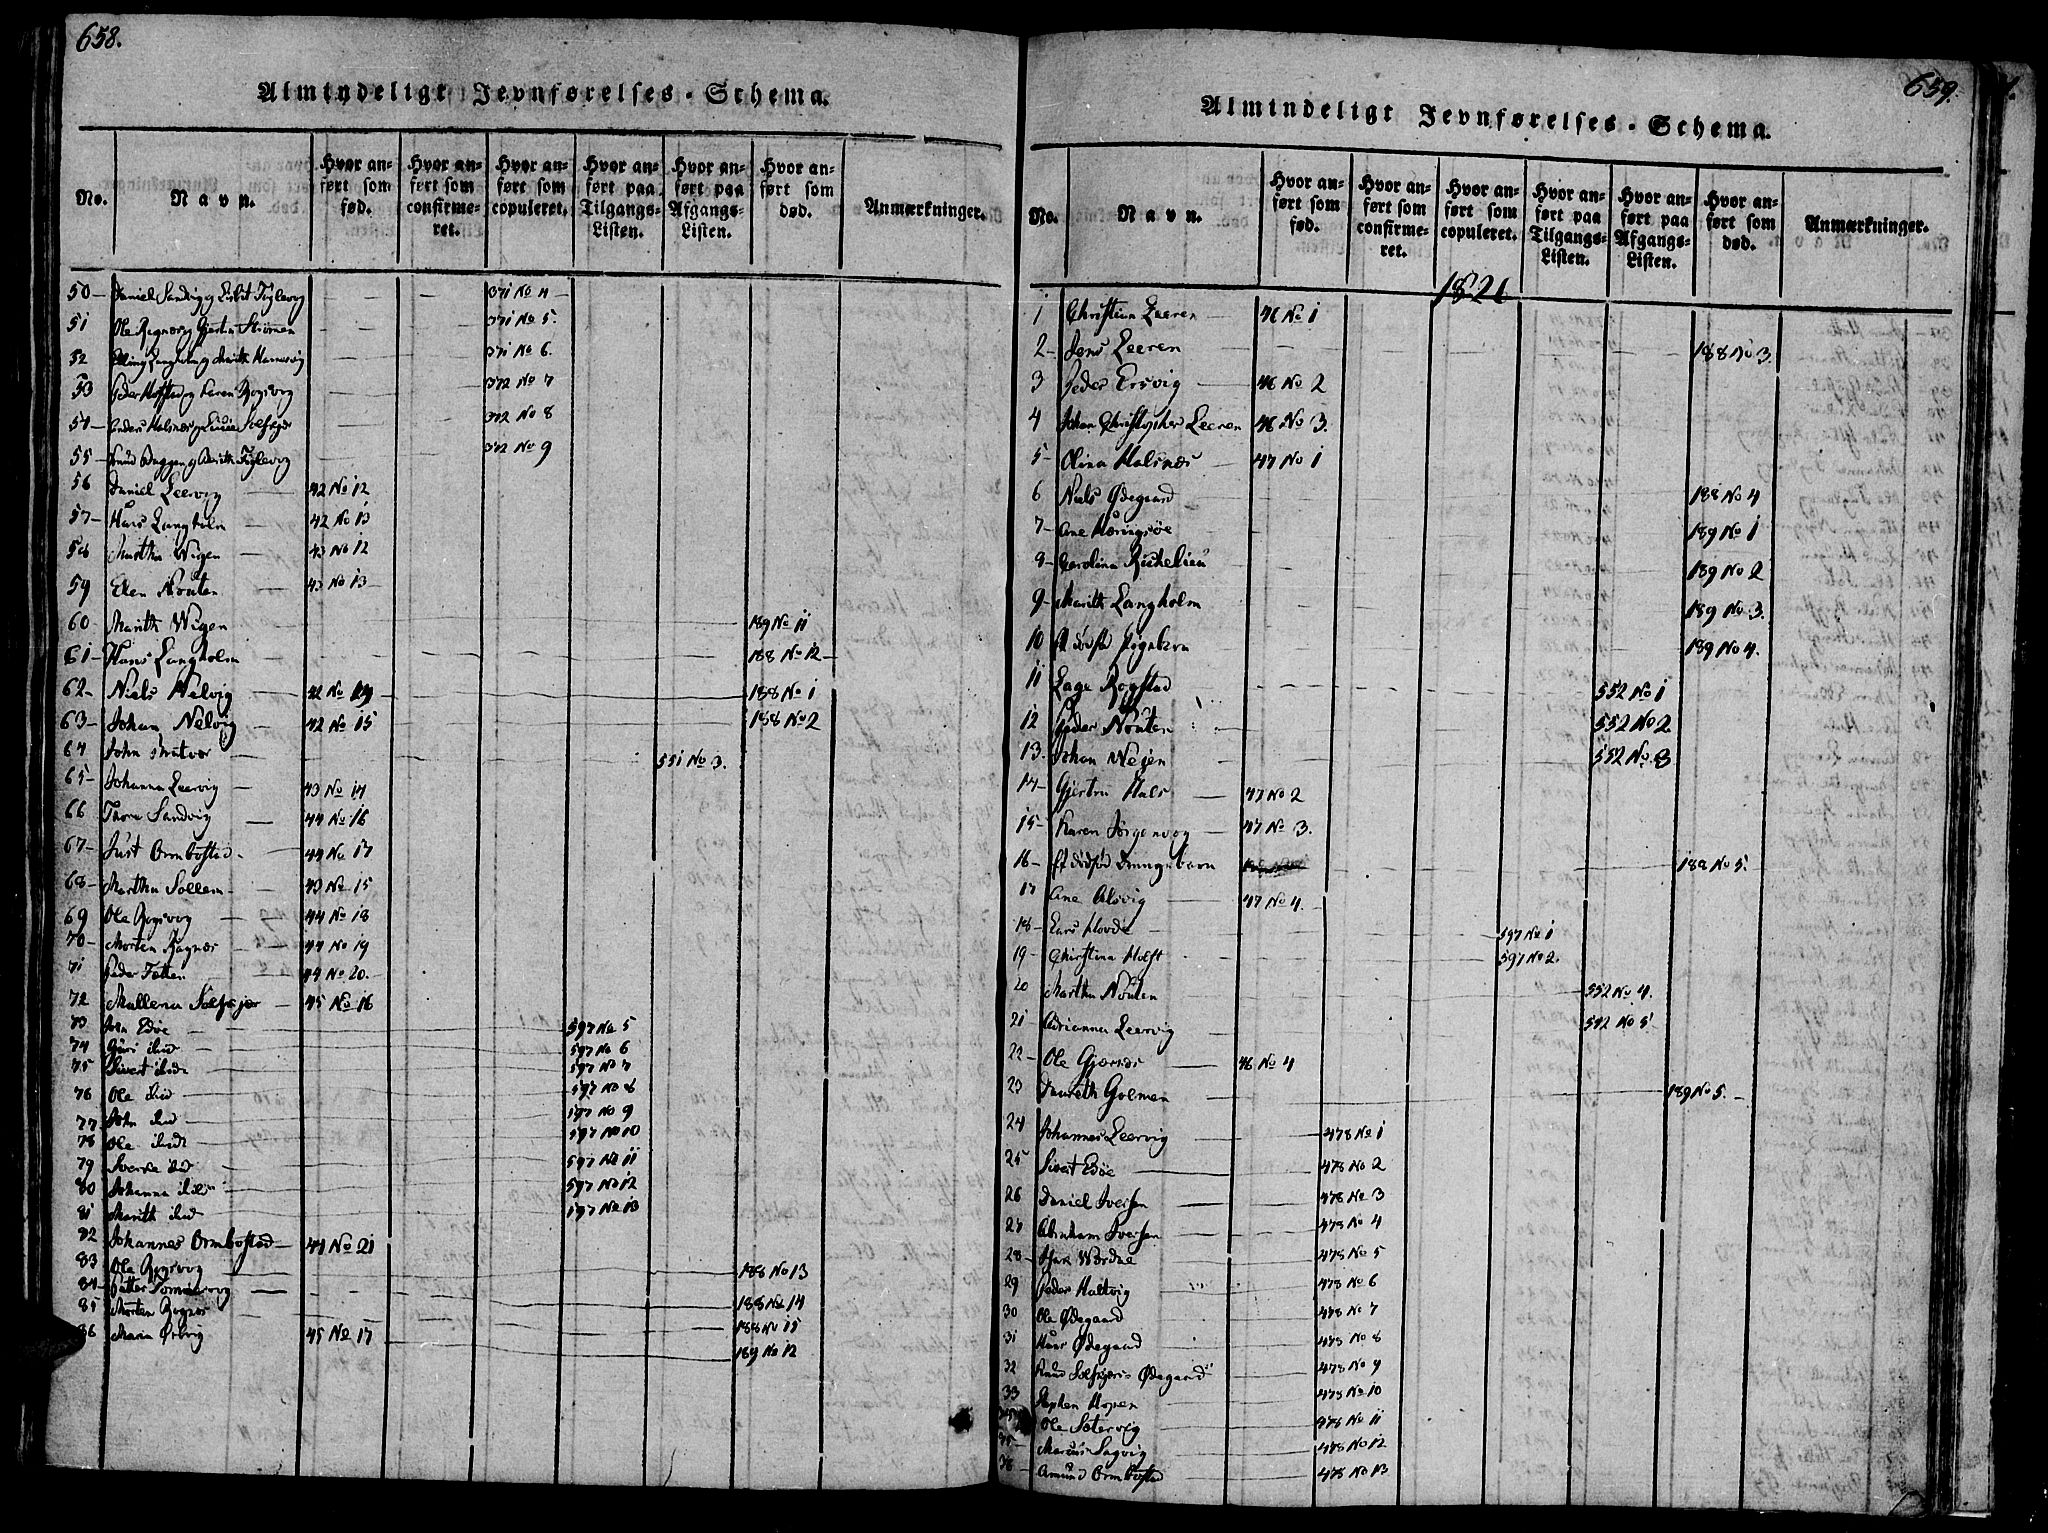 658.
Almindeligt Jevnførelses-Schema.
No. Navn. Hvor anført som fød. Hvor anført som confirmeret. Hvor anført som copuleret. Hvor anført paa Tilgangs-Listen. Hvor anført paa Afgangs-Listen. Hvor anført som død. Anmærkninger.
50 Daniel Sandvig 371 No 4
51 Ole Ragnæs 371 No 5.
52 371 No 6.
53 372 No 7
54 372 No 8
55 372 No 9
56 Daniel Leervig 42 No 12
57 Hans Langholm 42 No 13
58 Martha Wigen 43 No 12
59 Elen Nouten 43 No 13
60 Marith Wigen 189 No 11
61 Hans Langholm 188 No 12
62 Niels Nelvig 42 No 188 No 1
63 Johan Nelvig 42 No 15 188 No 2
64 John 551 No 3.
65 Johanna Leervig 43 No 14
66 Thore Sandvig 44 No 16
67 Just Ormbostad 44 No 17
68 Martha Sollem 43 No 15
69 Ole Rogsvog 44 No 18
70 Morten Ragnæs 44 No 19
71 Peder Fætten 44 No 20.
72 Mallena 45 No 16
73 John Edøe 597 No 5
74 Guri ibid 597 No 6
75 Sivert ibid 597 No 7
76 Ole ibid 597 No 8
77 John ibid 597 No 9
78 Ole ibid 597 No 10
79 Sverke ibid 597 No 11
80 Johanna ibid 597 No 12
81 Marith ibid 597 No 13
82 Johannes Ormbostad 44 No 21
83 Ole Rogsvog 188 No 13
84 Petter 188 No 14
85 Morten Ragnæs 188 No 15
86 Maria Ørbvig 45 No 17 189 No 12
659.
Almindeligt Jevnførelses-Schema.
No. Navn. Hvor anført som fød. Hvor anført som confirmeret. Hvor anført som copuleret. Hvor anført paa Tilgangs-Listen. Hvor anført paa Afgangs-Listen. Hvor anført som død. Anmærkninger.
1821
1 Christian Leeren 46 No 1
2 Jens Leeren 188 No 3.
3 Peder Ersvig 46 No 2
4 Johan Christopher Leeren 46 No 3.
5 Olina Halsnæs 47 No 1
6 Niels Ødegaard 188 No 4
7 Ane Hæringsøe 189 No 1
8 Carolina Richelieu 189 No 2
9 Marith Langholm 189 No 3.
10 Et dødfød Pigebarn 189 No 4.
11 Lage Rogstad 552 No 1
12 Peder Nouten 552 No 2.
13. Johan Wejen 552 No. 3
14 Gjertru Hals 47 No 2
15 Karen Jørgenvog 47 No 3.
16 Et dødfød Drengebarn 188 No 5.
17 Ane Alsvig 47 No 4.
18 Lars Hovde 597 No 1
19 Christina Holft 597 No 2.
20 Martha Nouten 552 No 4.
21 Adrianna Leervig 552 No 5
22 Ole Gjærnæs 46 No 4
23 Golmen 189 No 5.
24 Johannes Leervig 478 No 1
25 Sivert Edøe 478 No 2
26 Daniel Iversen 478 No 3
27 Abraham Iversen 478 No 4
28 478 No 5
29 Peder Haltvig 478 No 6
30 Ole Ødegaard 478 No 7
31 Hans Ødegaard 478 No 8
32 Knud Ødegaard 478 No 9
33 Stephen Hopen 478 No 10
Ole Sætervig 478 No 11
35 Marcus Sagvig 478 No 12
36 Amund Ormbostad 478 No 13